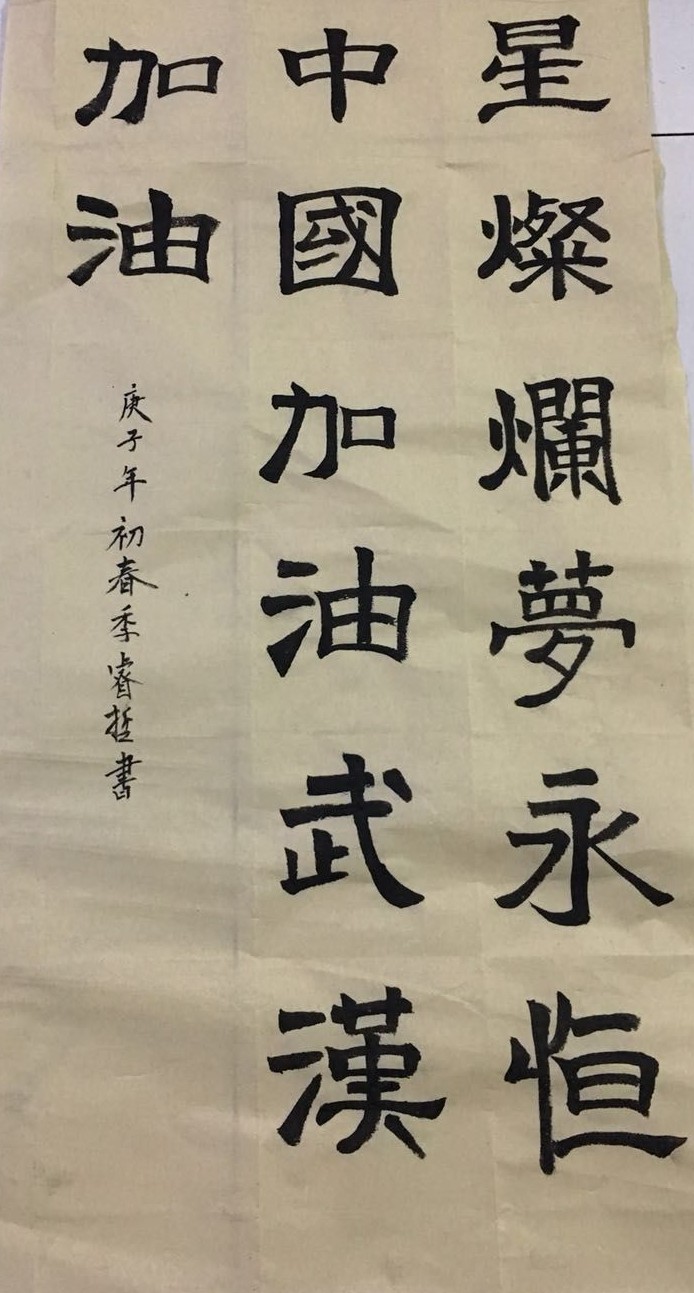 星燦爛夢永恒
中國加油武漢
加油
庚子年初春季睿哲書